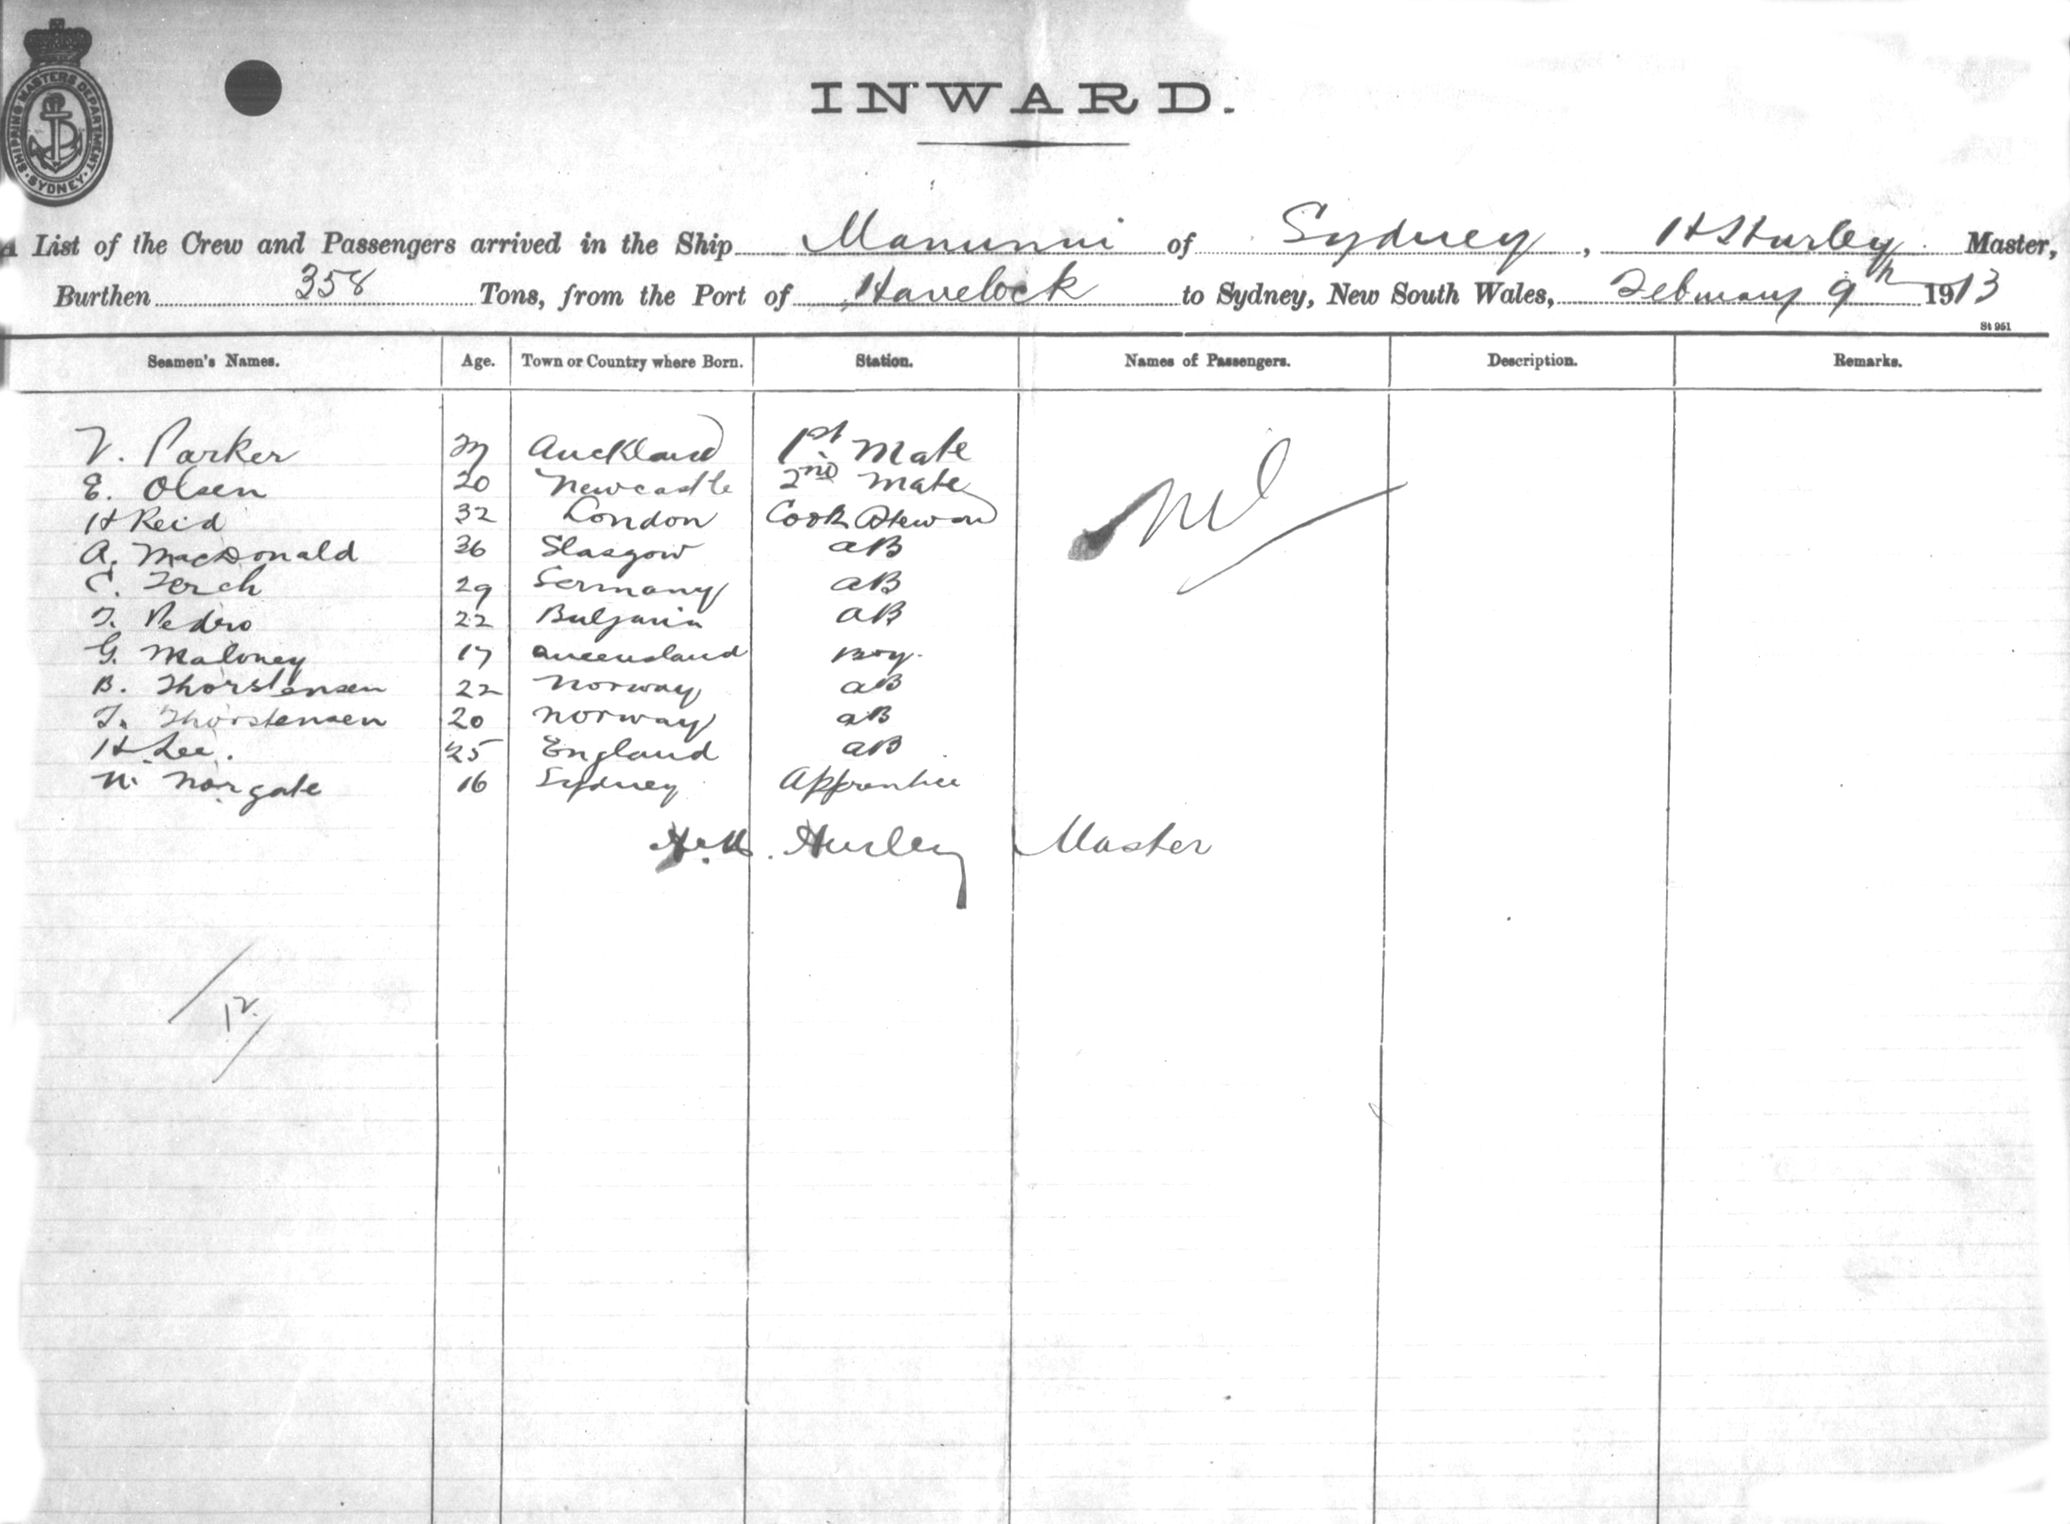 SHIPPING MASTERS DEPARTMENT
SYDNEY
INWARD.
A List of the Crew and Passengers arrived in the Ship of Sydney, Hurley Master,
Burthen 358 Tons, from the Port of Havelock to Sydney, New South Wales, February 9th 1913
St 951
Seamen's Names. Age. Town or Country where Born. Station. Names of Passengers. Description. Remarks.
V. Parker Auckland 1st Mate
E. Olsen 20 Newcastle 2nd Mate Nil
H Reid 32 London Cook Steward
A. MacDonald 36 Glasgow AB
C. Ferch 29 Germany AB
T. Pedro 22 Bulgaria AB
G. Maloney 17 Queensland Boy.
B. Thorstensen 22 Norway AB
T. Thorstensen 20 Norway AB
H Lee. 25 England AB
Norgate 16 Sydney Apprentice
Hurley Master
12